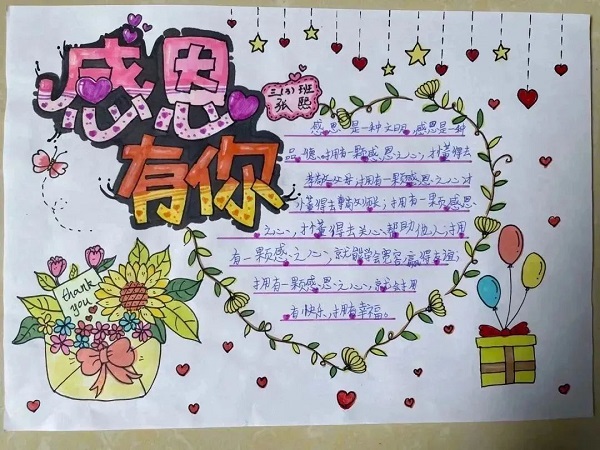 感恩
有你
三(3)班
张熙
感恩是一种文明,感恩是一种
品德,拥有一颗感恩之心,才懂得去
孝敬父母;拥有一颗感恩之心才
懂得去尊敬师长;拥有一颗感恩
之心,才懂得去关心帮助他人;拥
有一颗感恩之心,就能学会宽容,赢得友谊;
拥有一颗感恩之心,就会拥
有快乐,拥有幸福。
thank
you